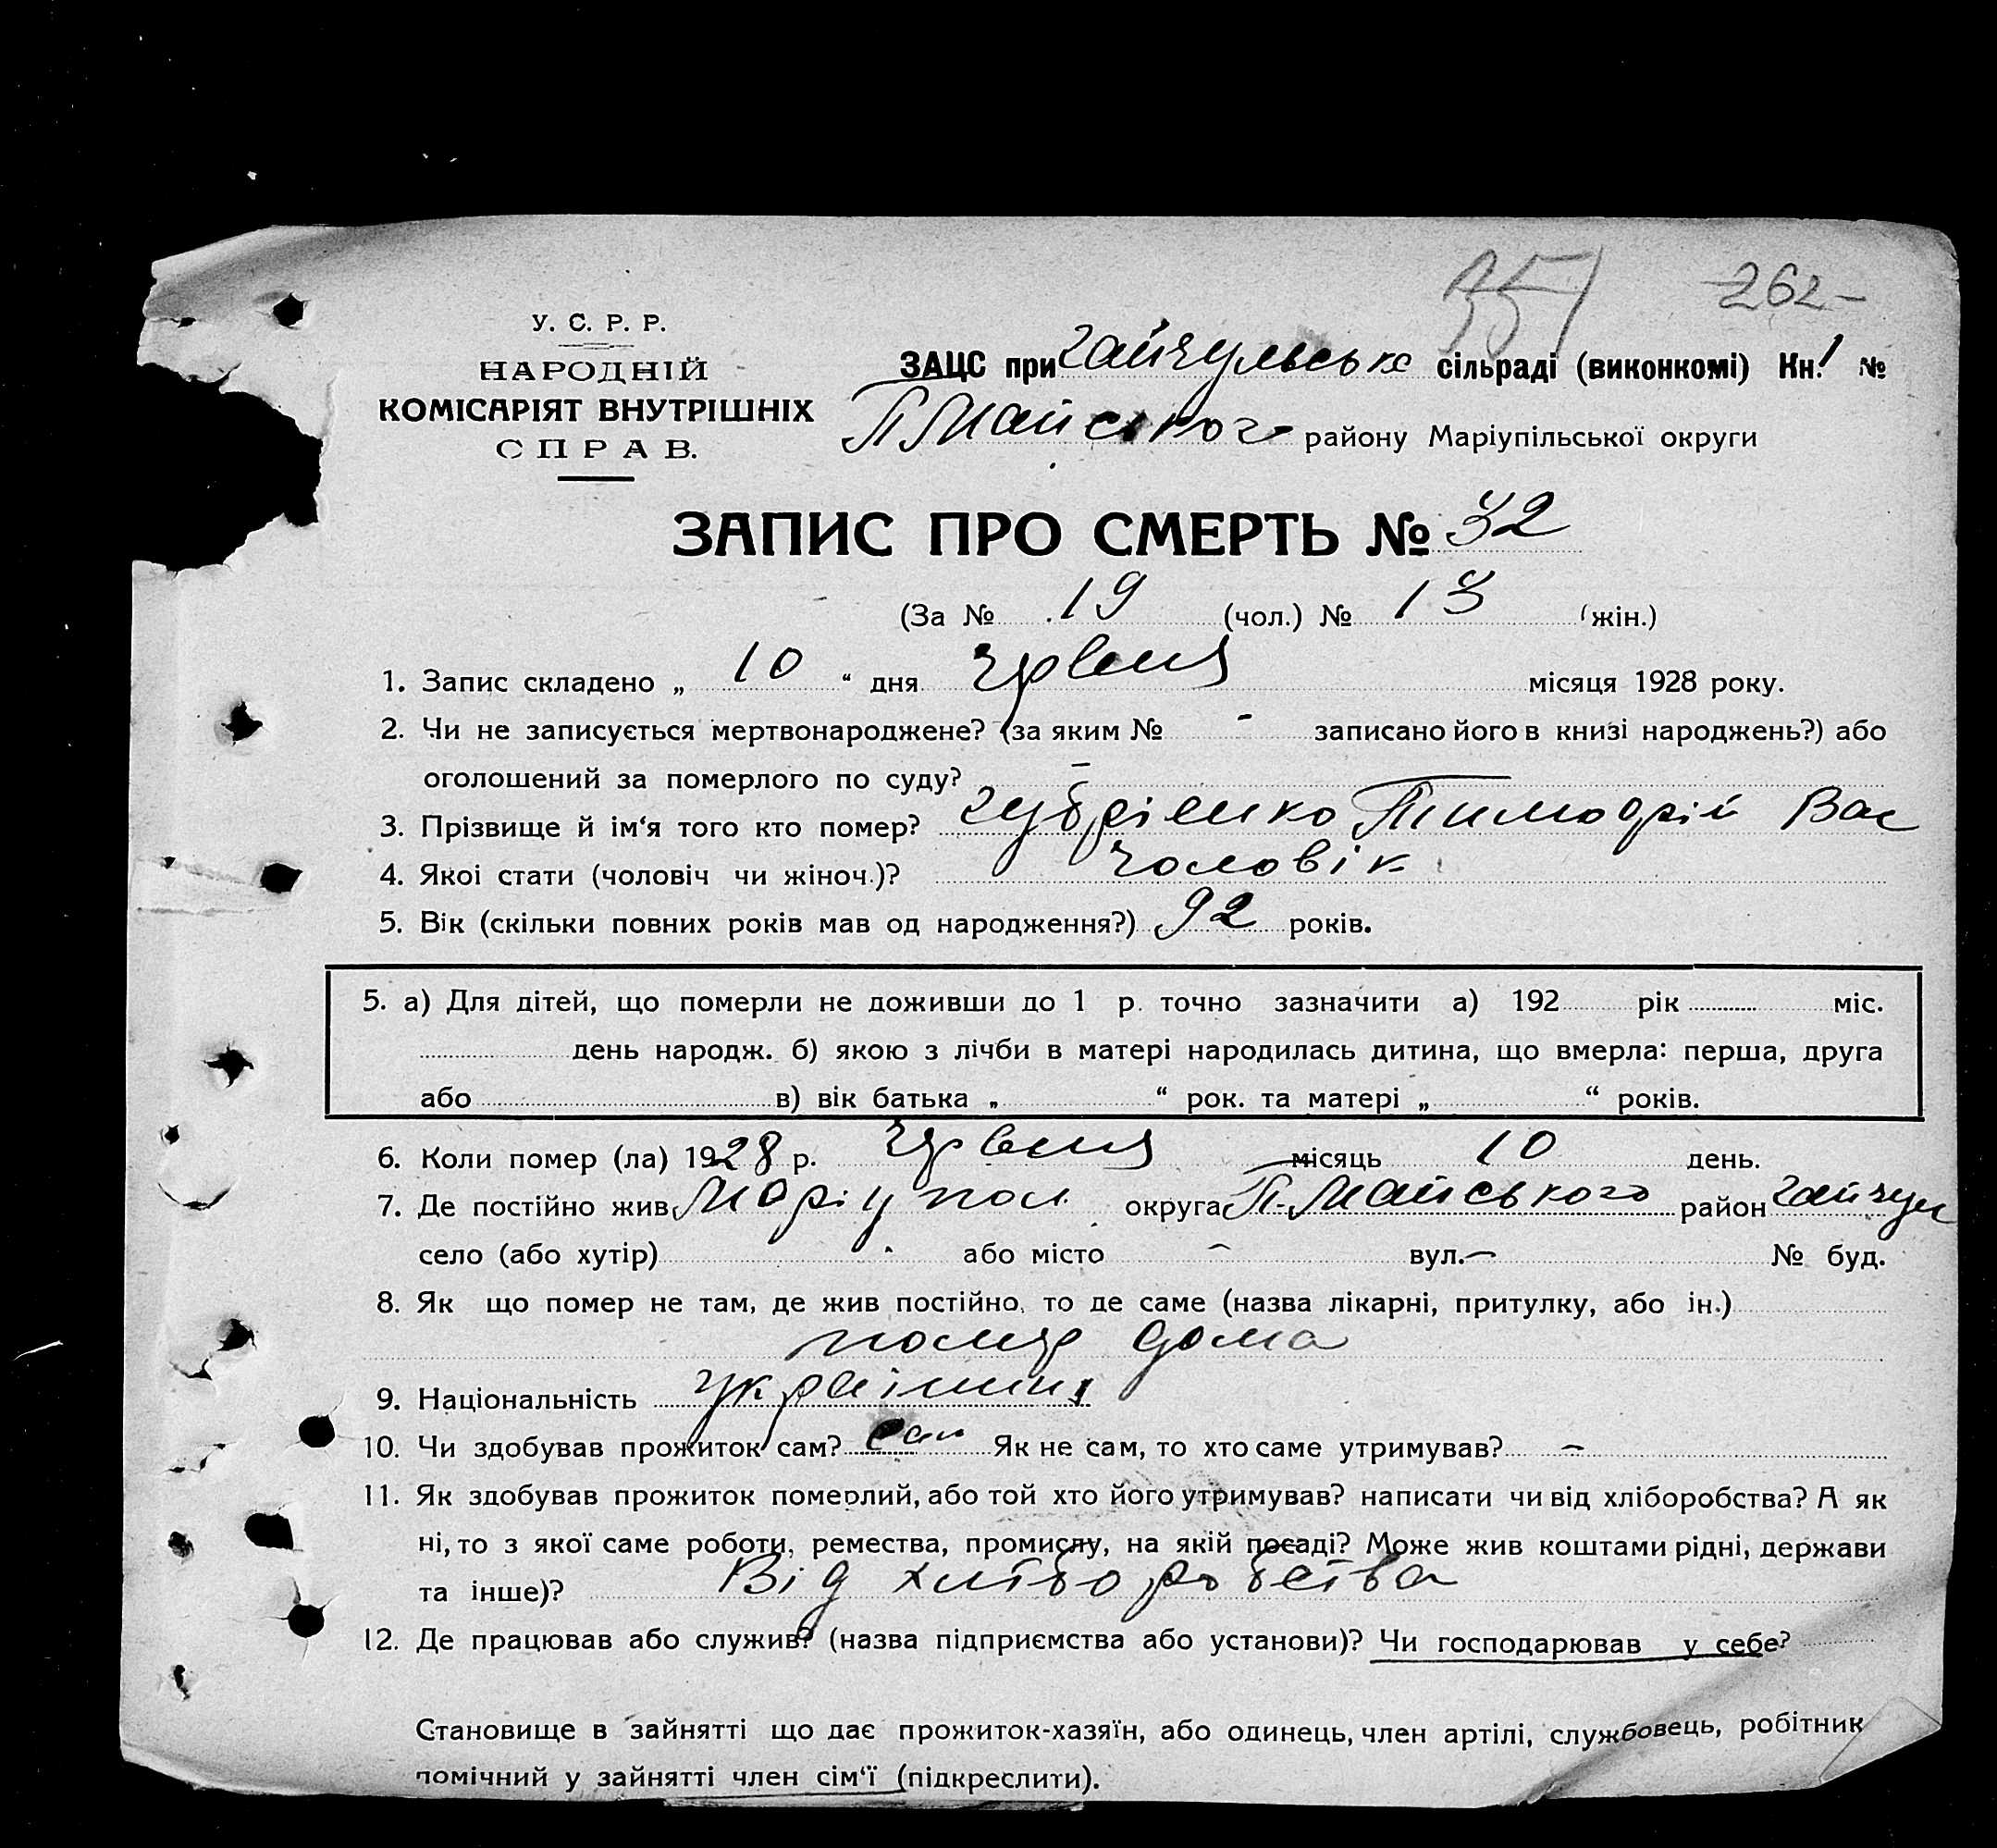 357 -262-
У. С. Р. Р.
НАРОДНІЙ
КОМІСАРІЯТ ВНУТРІШНІХ
СПРАВ.
ЗАЦС при Гайчульське сільраді (виконкомі) Кн. 1 №
П Майського району Маріупільської округи
ЗАПИС ПРО СМЕРТЬ № 32
(За № 19 (чол.) № 13 (жін.)
1. Запис складено „ 10 “ дня червня місяця 1928 року.
2. Чи не записується мертвонароджене? (за яким № - записано його в книзі народжень?) або
оголошений за померлого по суду? -
3. Прізвище й ім‘я того кто помер? Вас
4. Якоі стати (чоловіч чи жіноч.)? Чоловік
5. Вік (скільки повних років мав од народження?) 92 років.
5. а) Для дітей, що померли не доживши до 1 р. точно зазначити а) 192 рік міс.
день народж. б) якою з лічби в матері народилась дитина, що вмерла: перша, друга
або в) вік батька „ “ рок. та матері „ “ років.
6. Коли помер (ла) 1928 р. червня місяць 10 день.
7. Де постійно жив Маріупол. округа П-Майського район Гайчул
село (або хутір) або місто - вул. - № буд.
8. Як що помер не там, де жив постійно, то де саме (назва лікарні, притулку, або ін.)
помер дома
9. Національність
10. Чи здобував прожиток сам? Сам Як не сам, то хто саме утримував? -
11. Як здобував прожиток померлий, або той хто його утримував? написати чи від хліборобства? А як
ні, то з якої саме роботи, ремества, промислу, на якій посаді? Може жив коштами рідні, держави
та інше)? Від хліборобства
12. Де працював або служив? (назва підприємства або установи)? Чи господарював у себе?
Становище в зайнятті що дає прожиток-хазяїн, або одинець, член артілі, службовець, робітник
помічний у зайнятті член сім‘ї (підкреслити).